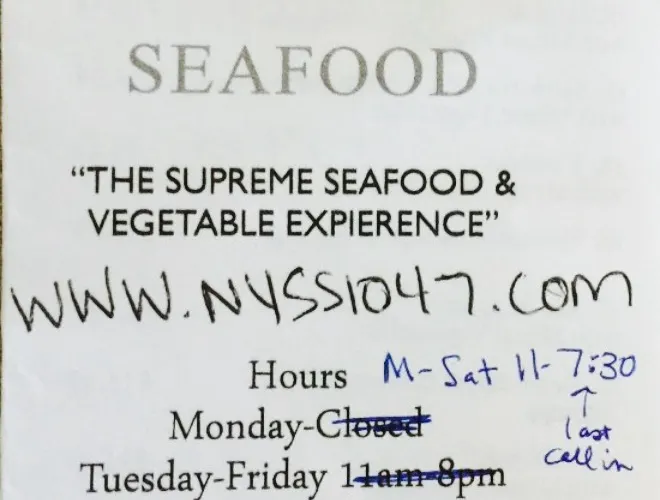 SEAFOOD
"THE SUPREME SEAFOOD &
VEGETABLE EXPIERENCE"
WWW.NYSS1047.COM
Hours M-Sat 11-7:30
↑
last
call in
Monday-Closed
Tuesday-Friday 11am-8pm